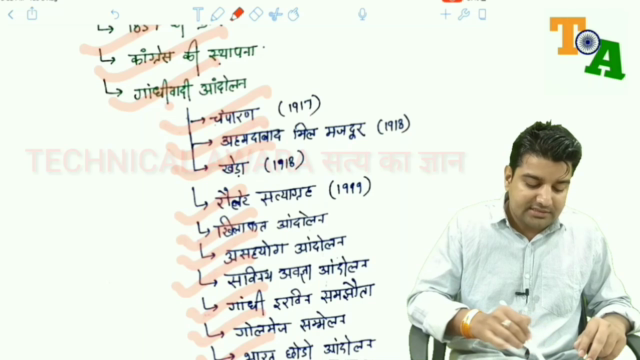 ↳ कांग्रेस की स्थापना
↳ गांधीवादी आंदोलन
↳ चंपारण (1917)
↳ अहमदाबाद मिल मजदूर (1918)
↳ खेड़ा (1918)
↳ रौलेट सत्याग्रह (1919)
↳ खिलाफत आंदोलन
↳ असहयोग आंदोलन
↳ सविनय अवज्ञा आंदोलन
↳ गांधी इरविन समझौता
↳ गोलमेज सम्मेलन
↳ भारत छोडो आंदोलन
TECHNICAL AWARA सत्य का ज्ञान
T A